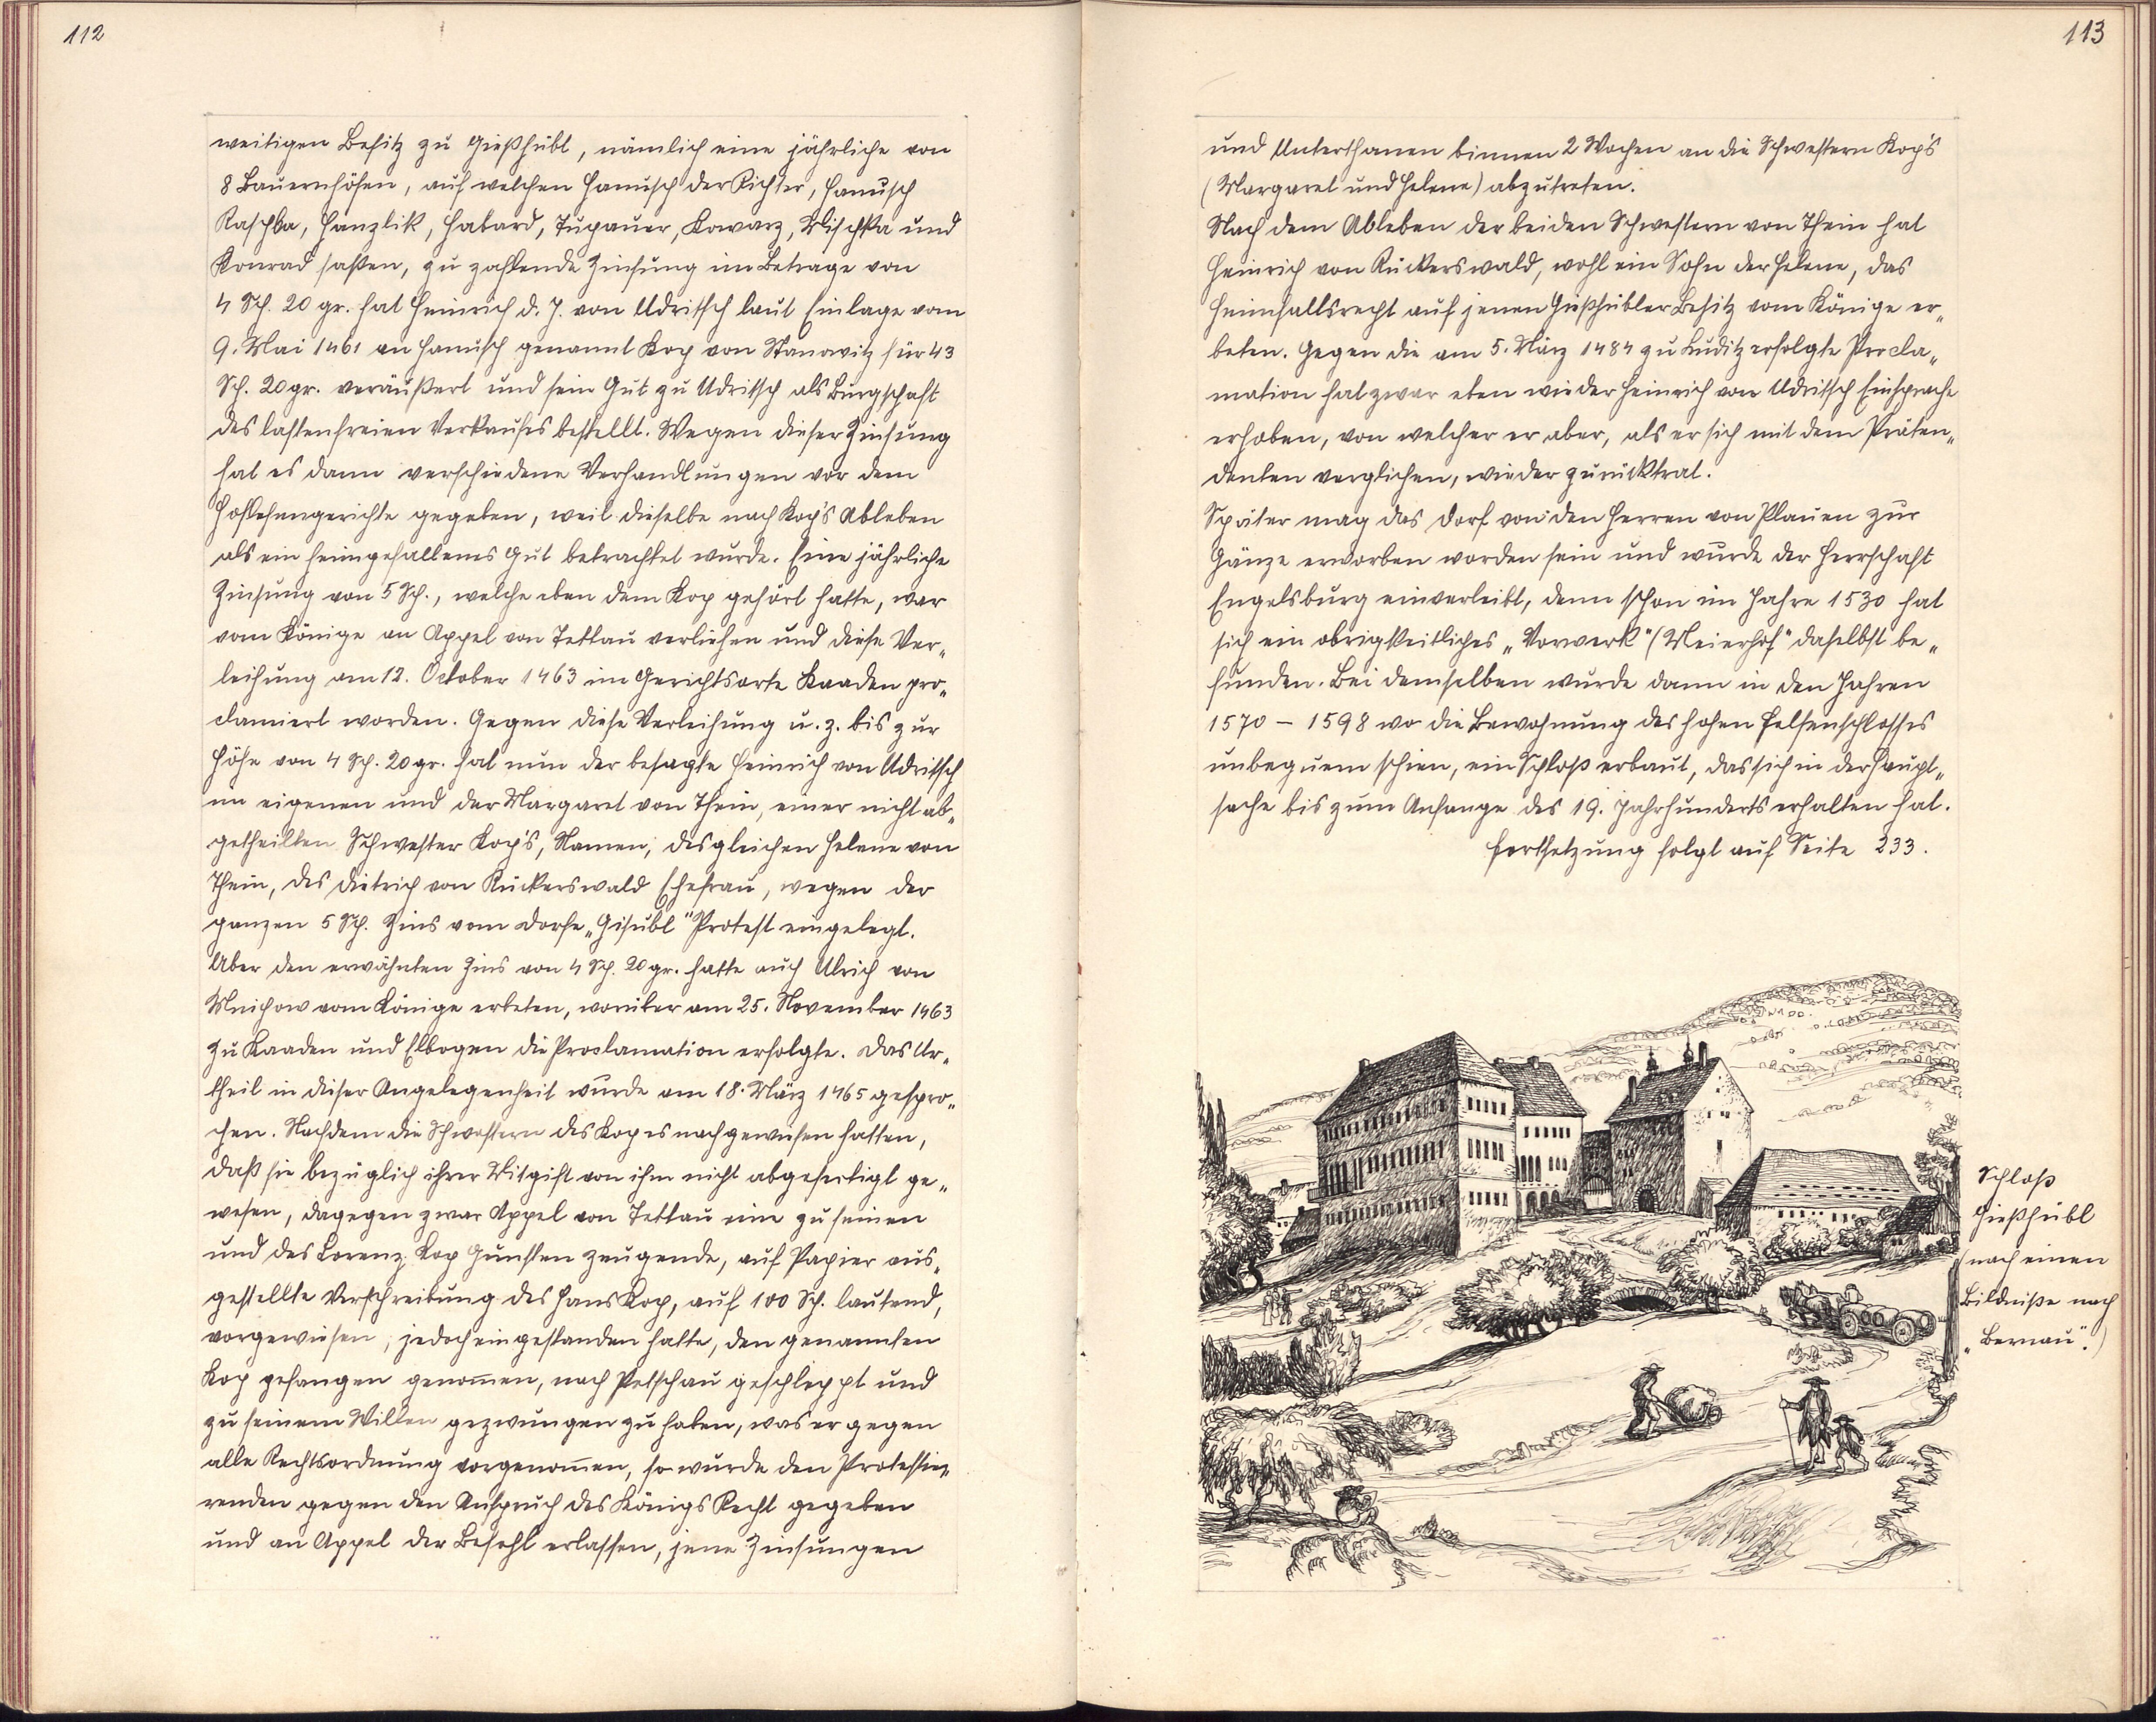 112
weitigen Besitz zu Gießhübl, nämlich eine jährliche von
8 Bauernhöfen, auf welchen Hanusch der Richter, Hanusch
Raschka, Hanzlik, Habard, Tupauer, Kowarz, Mischka und
Konrad saßen, zu zahlende Zinsung im Betrage von
4 Sch. 20 gr. hat Heinrich d. J. von Udritsch laut Einlage vom
9. Mai 1461 an Hanusch genannt Kop von Stanowitz für 43
Sch. 20 gr. veräußert und sein Gut zu Udritsch als Burgschaft
des lastenfreien Verkaufes bestellt. Wegen dieser Zinsung
hat es dann verschiedene Verhandlungen vor dem
Hoflehengerichte gegeben, weil dieselbe nach Kop's Ableben
als ein heimgefallenes Gut betrachtet wurde. Eine jährliche
Zinsung von 5 Sch., welche eben dem Kop gehört hatte, war
vom Könige an Appel von Tettau verliehen und diese Ver„
leihung am 12. October 1463 im Gerichtsorte Kaaden pro„
clamiert worden. Gegen diese Verleihung u. z. bis zur
Höhe von 4 Sch. 20 gr. hat nun der besagte Heinrich von Udritsch
im eigenen und der Margaret von Thein, einer nicht ab„
getheilten Schwester Kop's, Namen, desgleichen Helene von
Thein, des Dietrich von Rückerswald Ehefrau, wegen der
ganzen 5 Sch. Zins vom Dorfe „Gisübl" Protest eingelegt.
Über den erwähnten Zins von 4 Sch. 20 gr. hatte auch Ulrich von
Mnichow vom Könige erbeten, worüber am 25. November 1463
zu Kaaden und Elbogen die Proclamation erfolgte. Das Ur„
theil in dieser Angelegenheit wurde am 18. März 1465 gespro„
chen. Nachdem die Schwestern des Kop es nachgewiesen hatten,
daß sie bezüglich ihrer Mitgift von ihm nicht abgefertigt ge„
wesen, dagegen zwar Appel von Tettau eine zu seinen
und des Lorenz Kop Gunsten zeugende, auf Papier aus„
gestellte Verschreibung des Hans Kop, auf 100 Sch. lautend,
vorgewiesen, jedoch eingestanden hatte, den genannten
Kop gefangen genom̄en, nach Petschau geschleppt und
zu seinem Willen gezwungen zu haben, was er gegen
alle Rechtsordnung vorgenom̄en, so wurde den Protestie„
renden gegen den Anspruch des Königs Recht gegeben
und an Appel der Befehl erlassen, jene Zinsungen
113
und Unterthanen binnen 2 Wochen an die Schwestern Kop's
(Margaret und Helene) abzutreten.
Nach dem Ableben der beiden Schwestern von Thein hat
Heinrich von Rückerswald, wohl ein Sohn der Helene, das
Heimfallsrecht auf jenen Gießhübler Besitz vom Könige er„
beten. Gegen die am 5. März 1484 zu Luditz erfolgte Procla„
mation hat zwar eben wieder Heinrich von Udritsch Einsprache
erhoben, von welcher er aber, als er sich mit dem Präten„
denten verglichen, wieder zurücktrat.
Später mag das Dorf von den Herren von Plauen zur
Gänze erworben worden sein und wurde der Herrschaft
Engelsburg einverleibt, denn schon im Jahre 1530 hat
sich ein obrigkeitliches „Vorwerk" (Meierhof" daselbst be„
funden. Bei demselben wurde dann in den Jahren
1570 – 1598 wo die Bewohnung des hohen Felsenschlosses
unbequem schien, ein Schloß erbaut, das sich in der Haupt„
sache bis zum Anfange des 19. Jahrhunderts erhalten hat.
Fortsetzung folgt auf Seite 233.
Schloß
Gießhübl
(nach einen
Bildniße nach
„Bernau".)